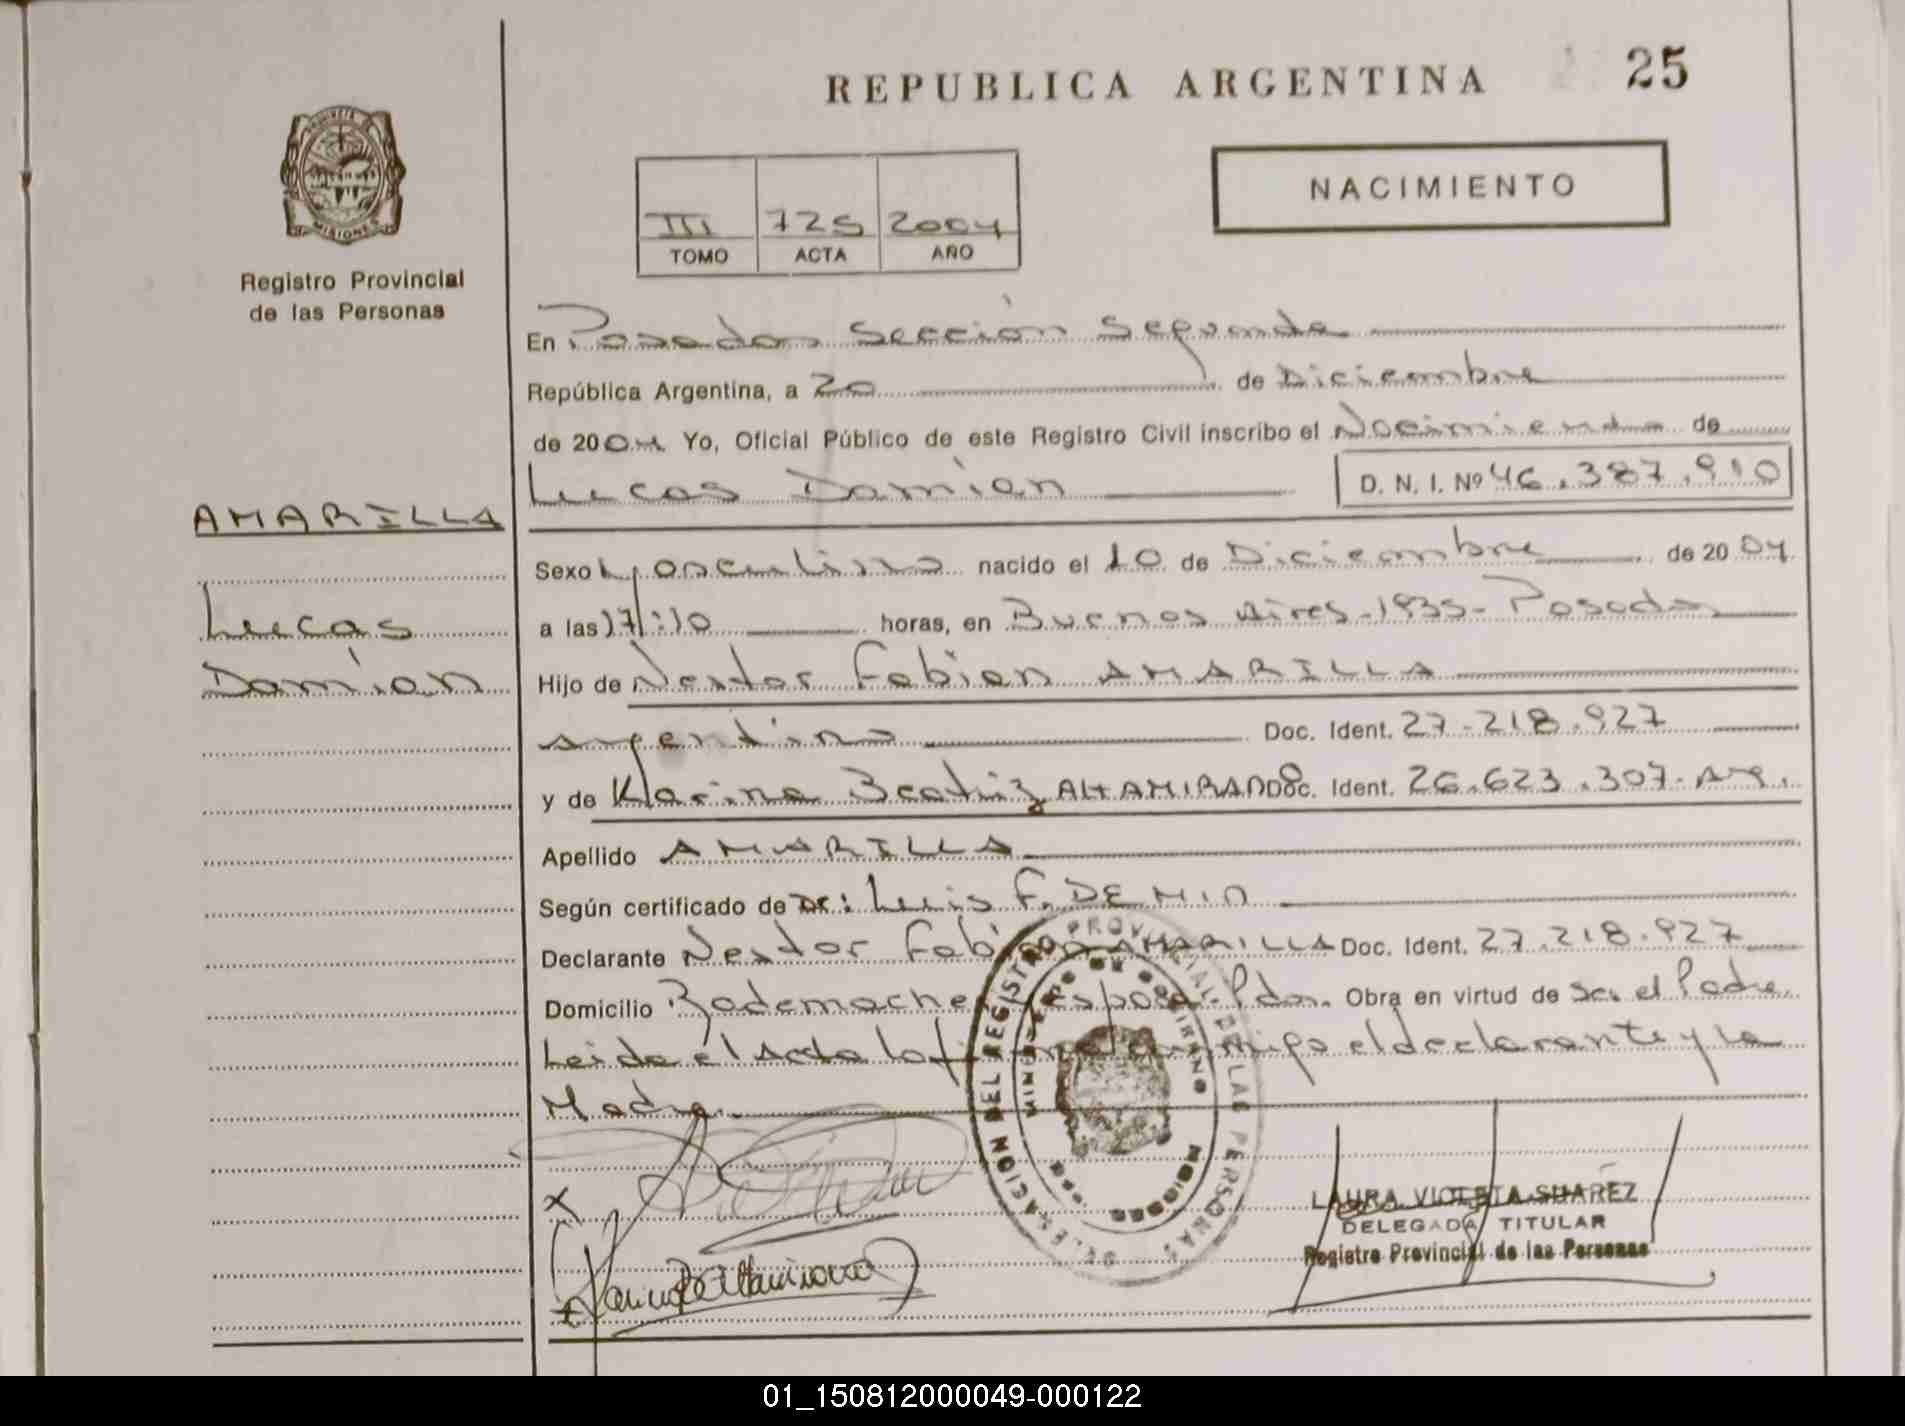 REPUBLICA ARGENTINA
25
NACIMIENTO
PROVINCIA DE
MISIONES
Registro Provincial
de las Personas
III 725 2004
TOMO ACTA AÑO
En Posadas Sección Segunda
República Argentina, a 20 de Diciembre
de 2004 Yo, Oficial Público de este Registro Civil inscribo el Nacimiento de
Lucas Damián D. N. I. Nº 46.387.910
AMARILLA
Lucas
Damián
Sexo Masculino nacido el 10 de Diciembre de 2004
a las 17:10 horas, en Buenos Aires-1935-Posadas
Hijo de Nestor Fabian AMARILLA
argentino Doc. Ident. 27-218.927
y de Karina Beatriz ALTAMIRANO Doc. Ident. 26.623.307-Arg.
Apellido AMARILLA
Según certificado de Dr: Luis F. DEMIN
Declarante Nestor Fabian AMARILLA Doc. Ident. 27.218.927
Domicilio Rademacher y Pdas. Obra en virtud de ser el Padre
Leida el Acta la firman conmigo el declarante y la
Madre.
DELEGACION DEL REGISTRO PROVINCIAL DE LAS PERSONAS
MINISTERIO DE GOBIERNO
MISIONES
LAURA VIOLETA SUAREZ
DELEGADA TITULAR
Registro Provincial de las Personas
01_150812000049-000122